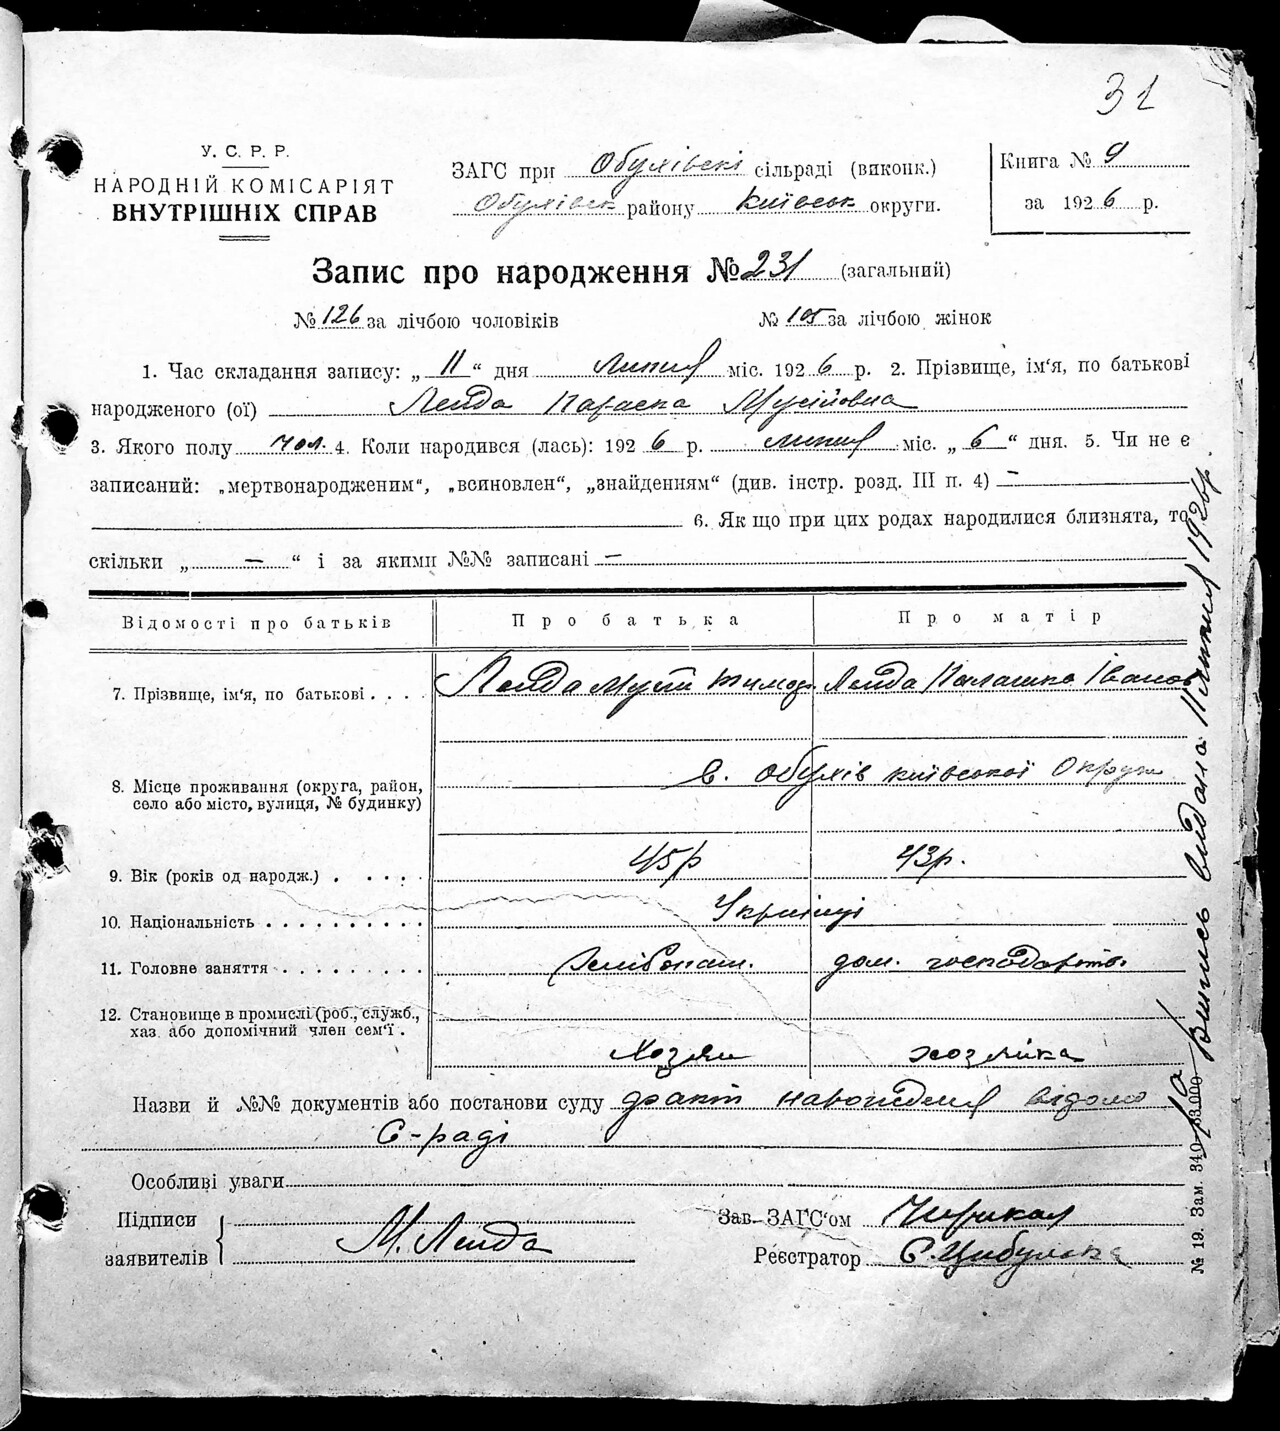 31
У. С. Р. Р.
НАРОДНІЙ КОМІСАРІЯТ
ВНУТРІШНІХ СПРАВ
ЗАГС при Обухівскі сільраді (виконк.)
Обухівск району Київськ округи.
Книга № 9
за 1926 р.
Запис про народження № 231 (загальний)
№ 126 за лічбою чоловіків № 105 за лічбою жінок
1. Час складання запису: „ 11 “ дня липня міс. 1926 р. 2. Прізвище, ім‘я, по батькові
народженого (ої) Лейда Параска Мусіївна
3. Якого полу чол. 4. Коли народився (лась): 1926 р. липня міс. „ 6 “ дня. 5. Чи не є
записаний: „мертвонародженим“, „всиновлен“, „знайденням“ (див. інстр. розд. III п. 4) –
6. Як що при цих родах народилися близнята, то
скільки „ — “ і за якими №№ записані –
Відомості про батьків Про батька Про матір
7. Прізвище, ім‘я, по батькові . . . . Лейда Мусій Тимоф. Лейда Палашка Іванов
8. Місце проживання (округа, район,
село або місто, вулиця, № будинку) с. Обухів Київської Округи
9. Вік (років од народж.) . . . . . 45р 43р.
10. Національність . . . . . . . . . . Українці
11. Головне заняття . . . . . . . . . . дом. господарство.
12. Становище в промислі (роб., служб.,
хаз. або допомічний член сем‘ї . Хозяин хозяйка
Назви й №№ документів або постанови суду факт народження відомо
С-раді
Особливі уваги
Підписи
заявителів М. Лейда
Зав. ЗАГС‘ом
Реєстратор Є. Цибульска
Випись видана 11 липня 1926р.
№ 19. Зам. 340